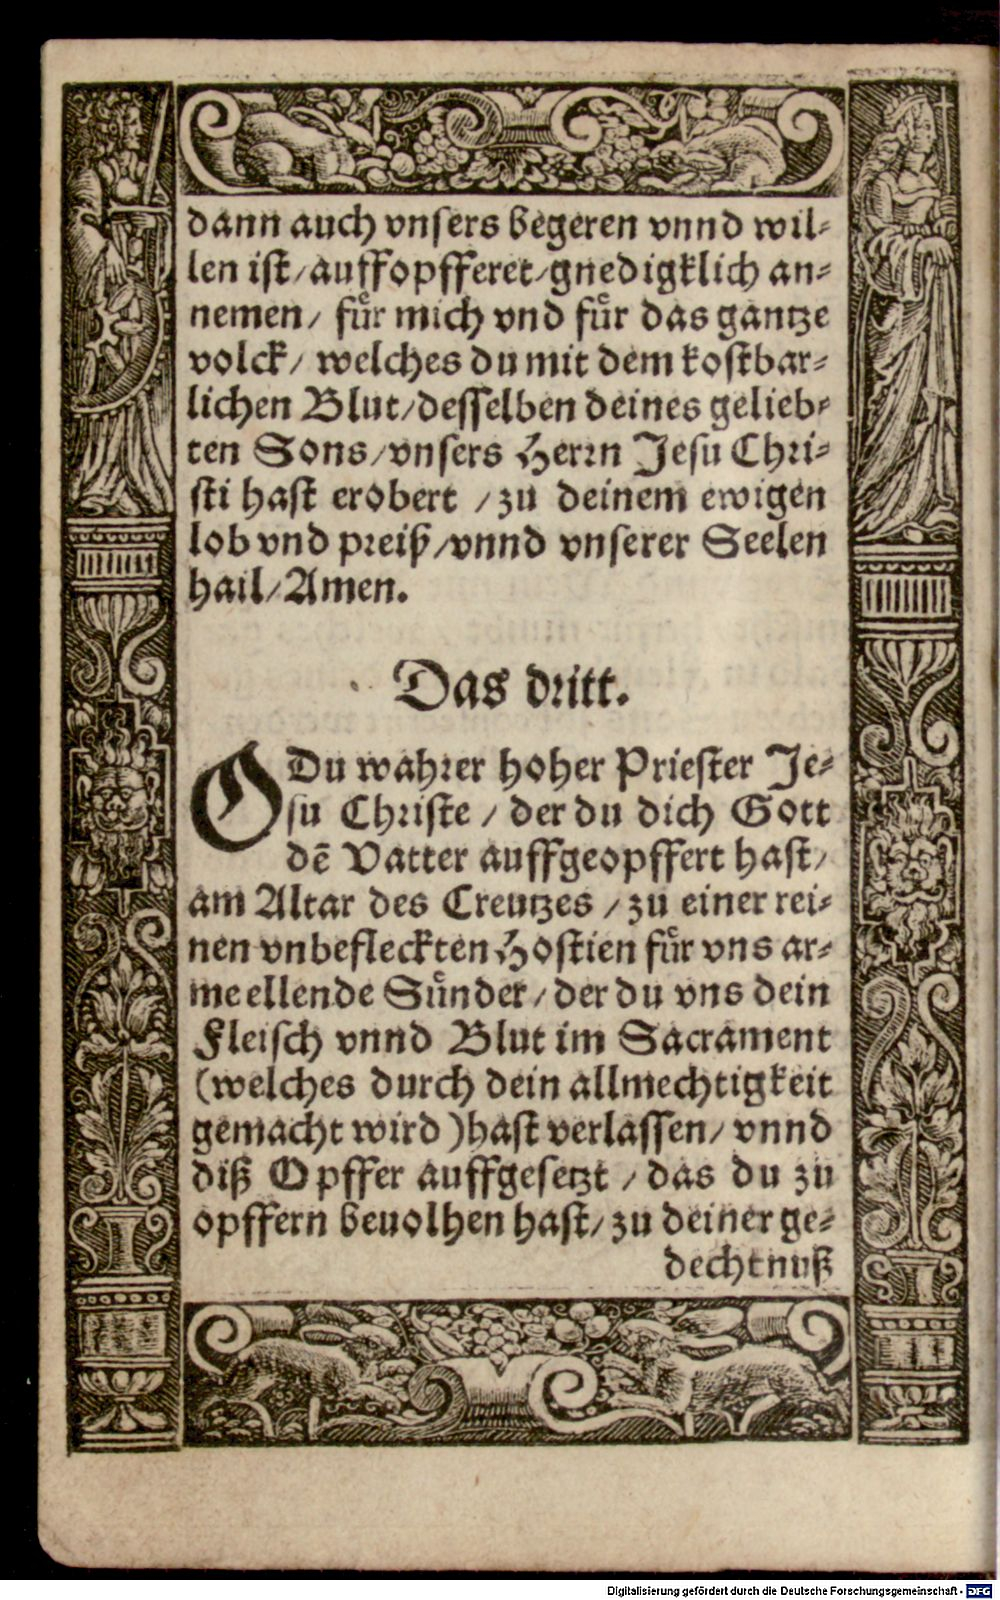 dann auch vnsers begeren vnnd wil⸗
len ist/auffopfferet/gnedigklich an⸗
nemen/ fuͤr mich vnd fuͤr das gantze
volck/ welches du mit dem kostbar⸗
lichen Blut/desselben deines gelieb⸗
ten Sons/vnsers Herrn Jesu Chri⸗
sti hast erobert /zu deinem ewigen
lob vnd preiß/vnnd vnserer Seelen
hail/Amen.
Das dritt.
O Du wahrer hoher Priester Je⸗
su Christe / der du dich Gott
dē Vatter auffgeopffert hast/
am Altar des Creutzes /zu einer rei⸗
nen vnbefleckten Hostien fuͤr vns ar⸗
me ellende Suͤnder/der du vns dein
Fleisch vnnd Blut im Sacrament
(welches durch dein allmechtigkeit
gemacht wird )hast verlassen/ vnnd
diß Opffer auffgesetzt /das du zu
opffern beuolhen hast/zu deiner ge⸗
dechtnuß
Digitalisierung gefördert durch die Deutsche Forschungsgemeinschaft - DFG